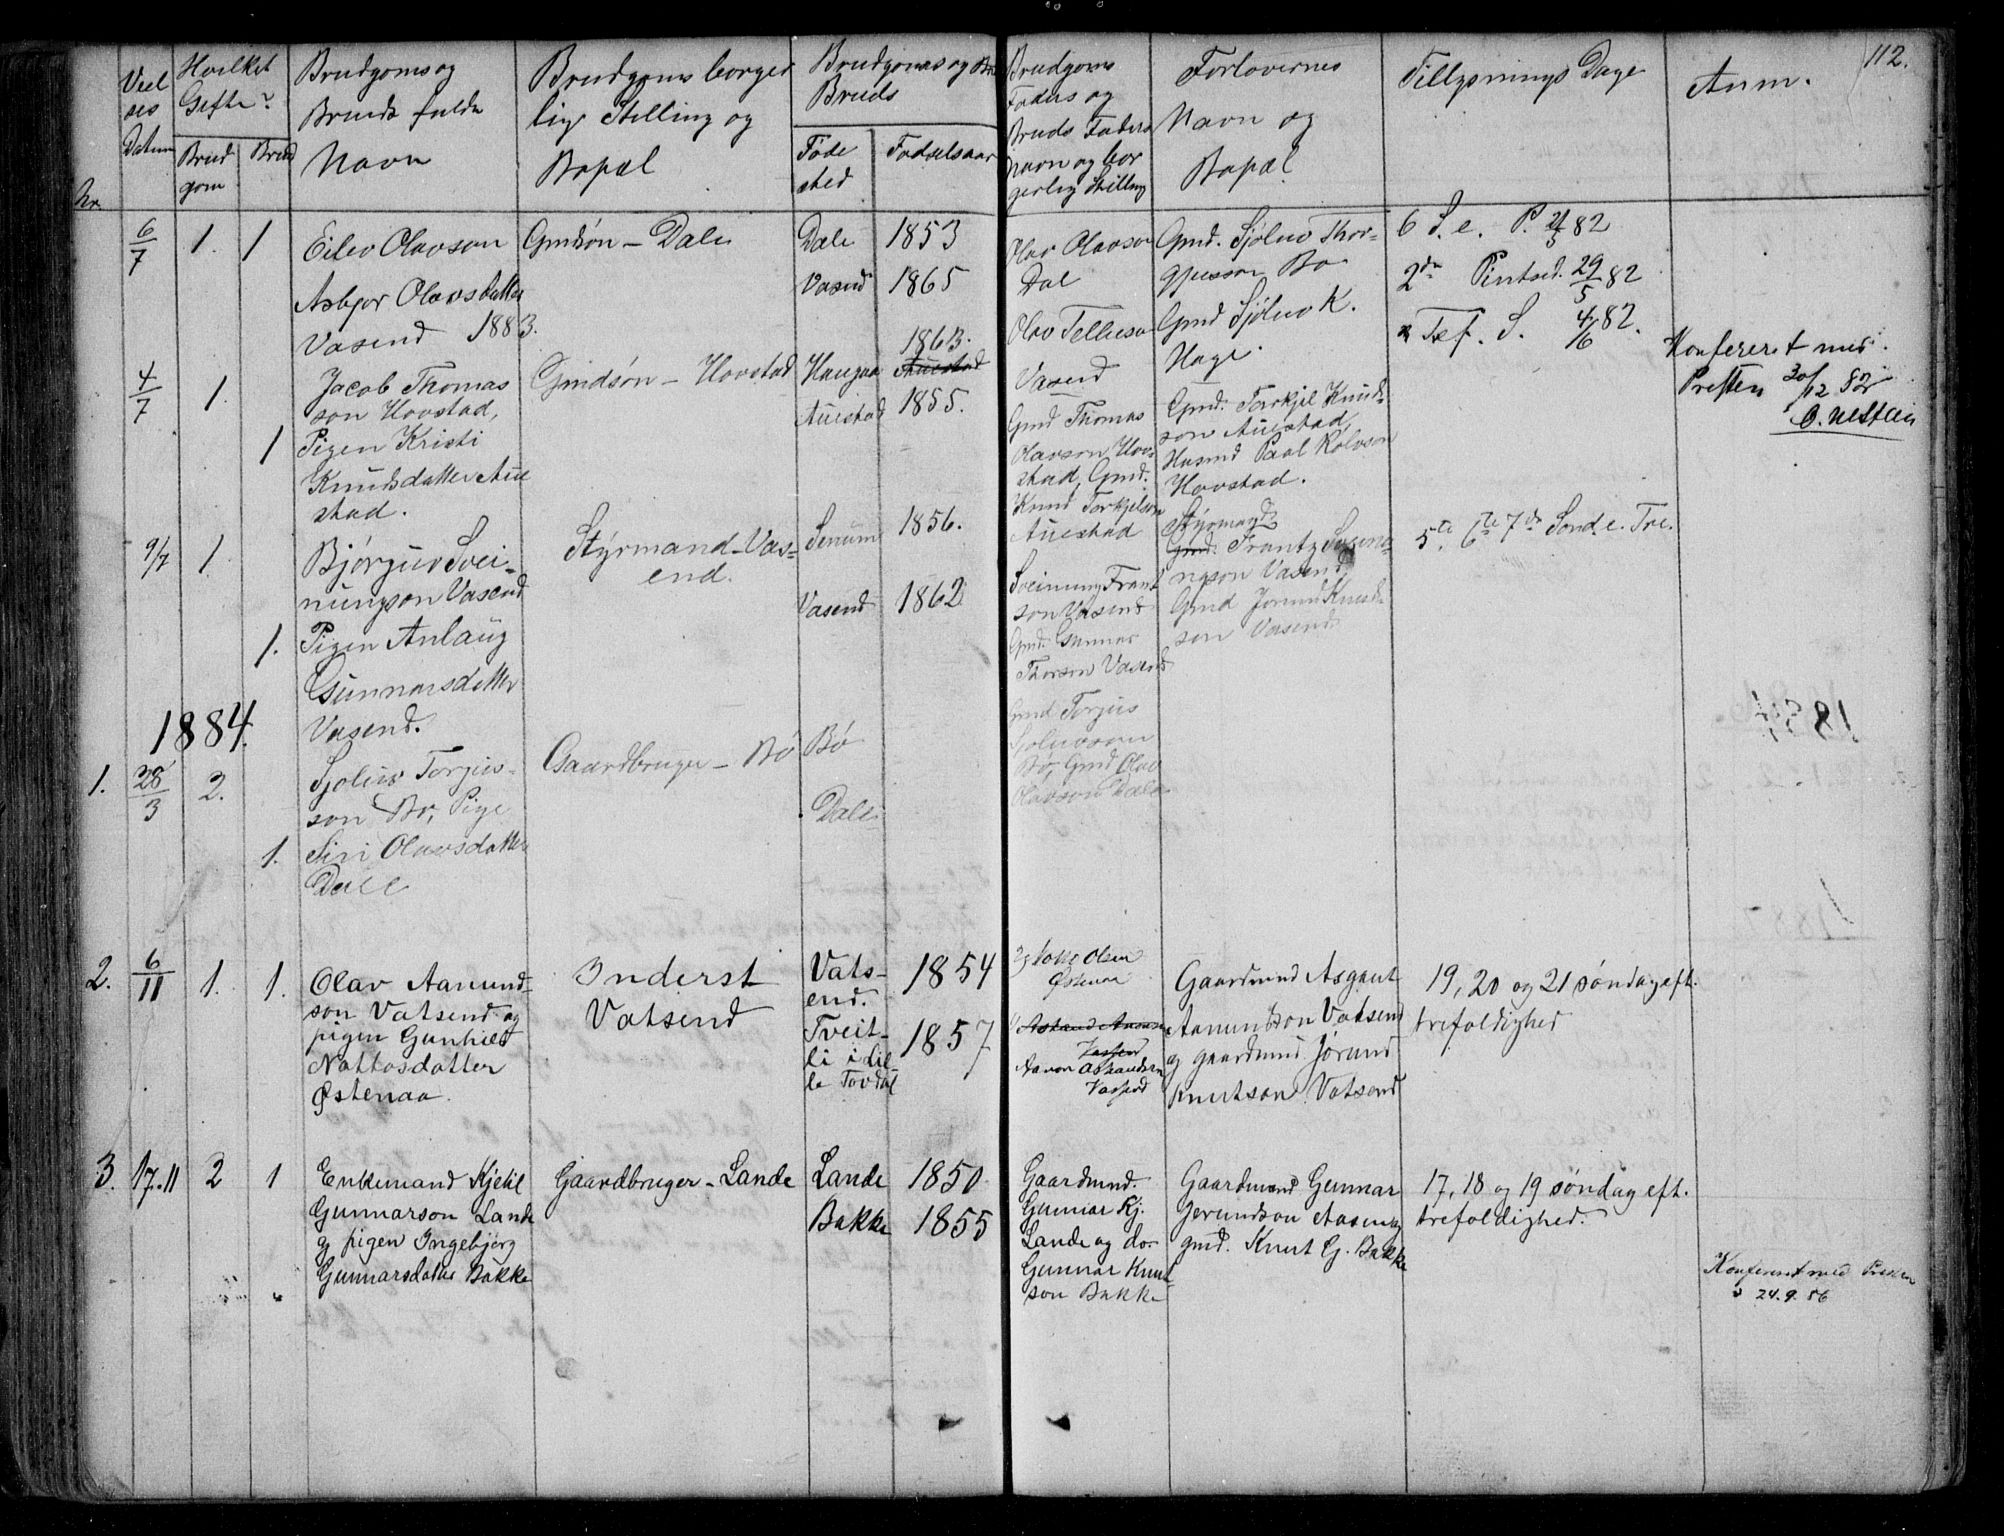 112.
Nr.
Viel
ses
Datum
Hvilket
Gifte?
Brud
gom
Brud
Brudgoms og
Bruds fulde
Navn
Brudgoms borger
lige Stilling og
Bopæl
Brudgoms og
Bruds
Føde
sted
Fødselsaar
Brudgoms
Faders og
Bruds Faders
Navn og bor
gerlig Stilling
Forlovernes
Navn og
Bopæl
Tillysnings Dage
Anm.
6/7 1. 1
Eilev Olavson
Asbjor Olavsdatter
Vasend 1883.
Gmdsøn - Dale
Dale 1853
Vasend 1865
Olav Olavson
Dal
Olav Telleson
Vasend
Gmd. Sjöluv Thor-
gjusson Bø
Gmd Sjöluv K.
Hage.
6 S. e. P. 82
2den Pintsed. 29/5 82
Tref. S. 4/6 82.
4/7 1.
1
Jacob Thomas
son Hovstad,
Pigen Kristi
Knudsdatter Aue
stad.
Gmdsøn - Hovstad
Haugaa Auestad 1863.
Auestad 1855.
Gmd Thomas
Olavson Hov-
stad, Gmd.
Knud Torkjelson
Auestad
Gmd. Torkjel Knud-
son Auestad,
Husmd Paal Rolvson
Hovstad.
Konfereret med
Presten 30/12 82
9/7 1.
1.
Bjørguv Svei-
nungson Vasend
Pigen Anlaug
Gunnarsdatter
Vasend.
Styrmand - Vas-
end.
Senum 1856.
Vasend 1862
Sveinung Frant
son Vasend
Gmd. Gunnar
Thorson Vasend
Styrmand
Gmd. Frantz Sveinu-
ngson Vasend,
Gmd Jorund Knud-
son Vasend
5te 6te 7de Sond. e. Tre.
1884.
1. 28/3 2.
1.
Sjoluv Torgius-
son Bø, Pige
Siri Olavsdatter
Dale
Gaardbruger - Bø
Bø
Dale
Gmd Torgius
Sjoluvson
Bø, Gmd Olav
Olavson Dale
2. 6/11 1. 1.
Olav Aamund-
son Vatsend og
pigen Gunhild
Nottosdatter
Østenaa.
Inderst
Vatsend
Vats-
end. 1854
Tveit-
li i Lil-
le Tovdal 1857
Notto Olsen
Østenaa
Vatsend
Gaardmand Asgaut
Aamundson Vatsend
og gaardmand Jørund
Knutson Vatsend
19, 20 og 21 søndag eft.
trefoldighed
3. 17.11 2 1
Enkemand Kjetil
Gunnarson Lande
og pigen Ingebjørg
Gunnarsdatter Bakke
Gaardbruger - Lande
Lande 1850
Bakke 1855
Gaardmd.
Gunnar Kj.
Lande og do.
Gunnar Knut
son Bakke
Gaardmand Gunnar
Gerundson Aasen og
gmd. Knut G. Bakke
17, 18 og 19 søndag eft.
trefoldighed.
Konfereret med Presten
24.9.86